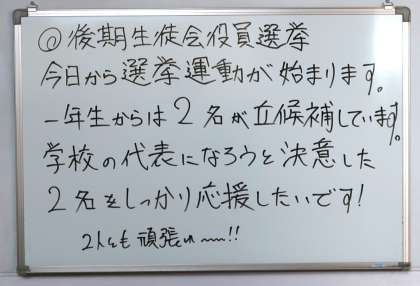 ◎後期生徒会役員選挙
今日から選挙運動が始まります。
一年生からは2名が立候補しています。
学校の代表になろうと決意した
2名をしっかり応援したいです!
2人とも頑張れ〜!!